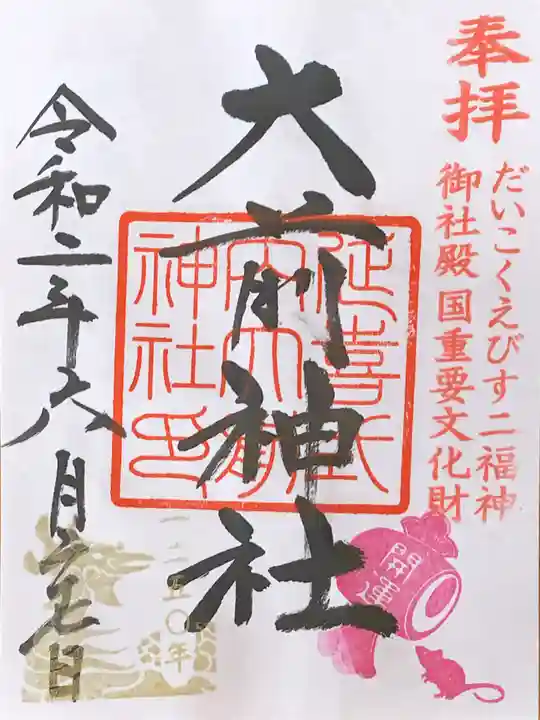 奉拝
だいこくえびす二福神
御社殿 国重要文化財
大前神社
延喜式
大前
神社印
令和二年六月廿七日